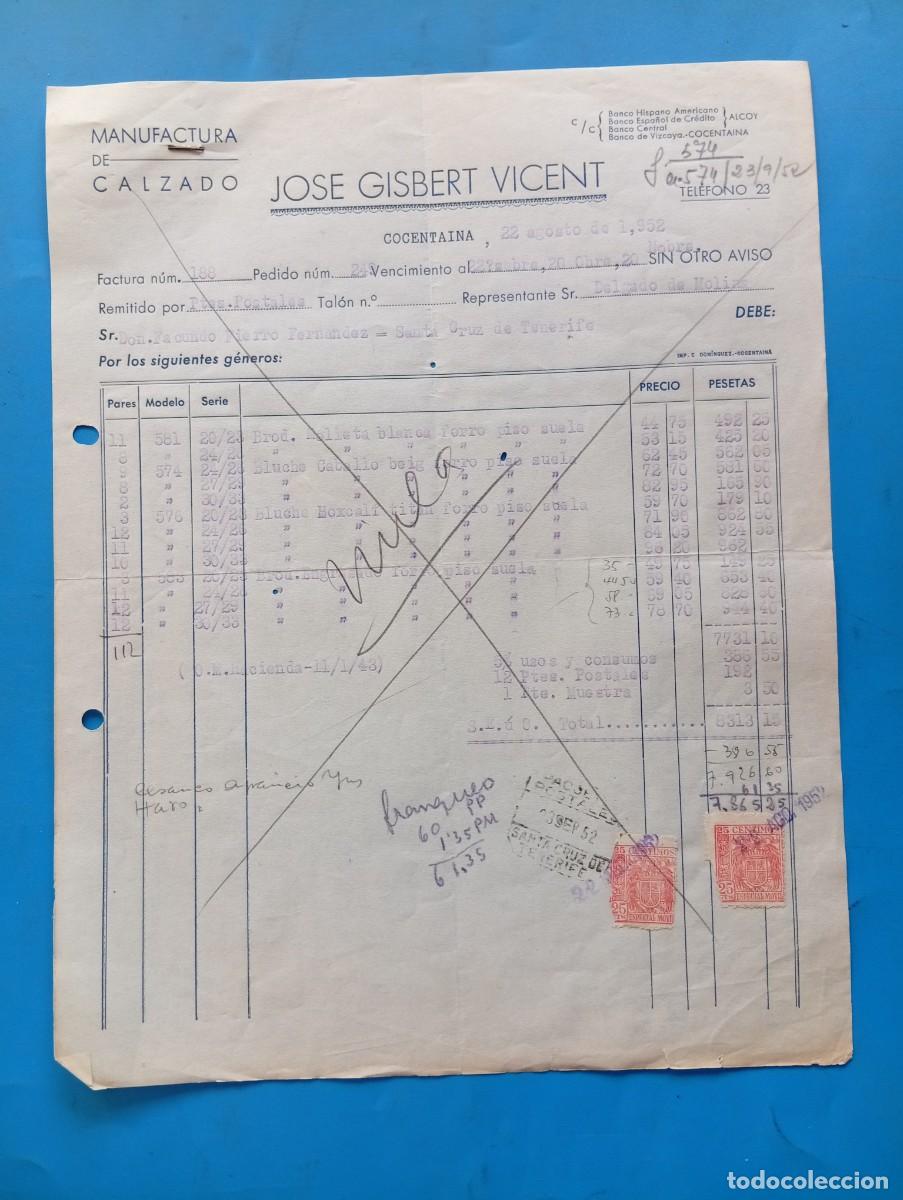 MANUFACTURA
DE
CALZADO
c/c Banco Hispano Americano
Banco Español de Crédito
Banco Central
ALCOY
Banco de Vizcaya.-COCENTAINA
574
574/23/9/52
TELÉFONO 23
JOSE GISBERT VICENT
COCENTAINA, 22 agosto de 1,952
Factura núm. 188 Pedido núm. 249 Vencimiento al 22 20 Obre, 20 Nobre. SIN OTRO AVISO
Remitido por Ptes.Postales Talón n.º Representante Sr. Delgado de Molina
Sr. Don.Facundo Fierro Fernandez = Santa Cruz de Tenerife
DEBE:
Por los siguientes géneros:
IMP. E. DOMÍNGUEZ.-COCENTAINA
Pares Modelo Serie PRECIO PESETAS
11 581 20/23 Brod. blanca forro piso suela 44 75 492 25
8 " 24/26 " " " " " 53 15 425 20
9 574 24/26 Bluche Caballo beig forro piso suela 62 45 562 05
8 " 27/29 " " " " " 72 70 581 60
2 " 30/33 " " " " " 82 95 165 90
3 576 20/23 Bluche Boxcalf titan forro piso suela 59 70 179 10
12 " 24/26 " " " " " 71 90 862 80
11 " 27/29 " " " " " 84 05 924 55
10 " 30/33 " " " " " 96 20 962
3 585 20/23 Brod.Engrasado forro piso suela 35- 49 75 149 25
11 " 24/26 " " " " " 4450 59 40 653 40
12 " 27/29 " " " " " 58- 69 05 828 60
12 " 30/33 " " " " " 73- 78 70 944 40
112
7731 10
(O.M.Hacienda-11/1/43) 5% usos y consumos 386 55
12 Ptes. Postales 192
1 Pte. Muestra 3 50
S.E.ú O. Total........... 8313 15
- 386 55
7.926 60
61 35
7.865 25
Haro
franqueo
60 PP
1'35 PM
61,35
POSTALES
SEP 52
SANTA CRUZ DE
TENERIFE
25 CENTIMOS 25
25 CTS
ESPECIAL MOVIL
25 CENTIMOS 25
25 CTS
ESPECIAL MOVIL
22 AGO. 1952
todocoleccion
todocoleccion.net